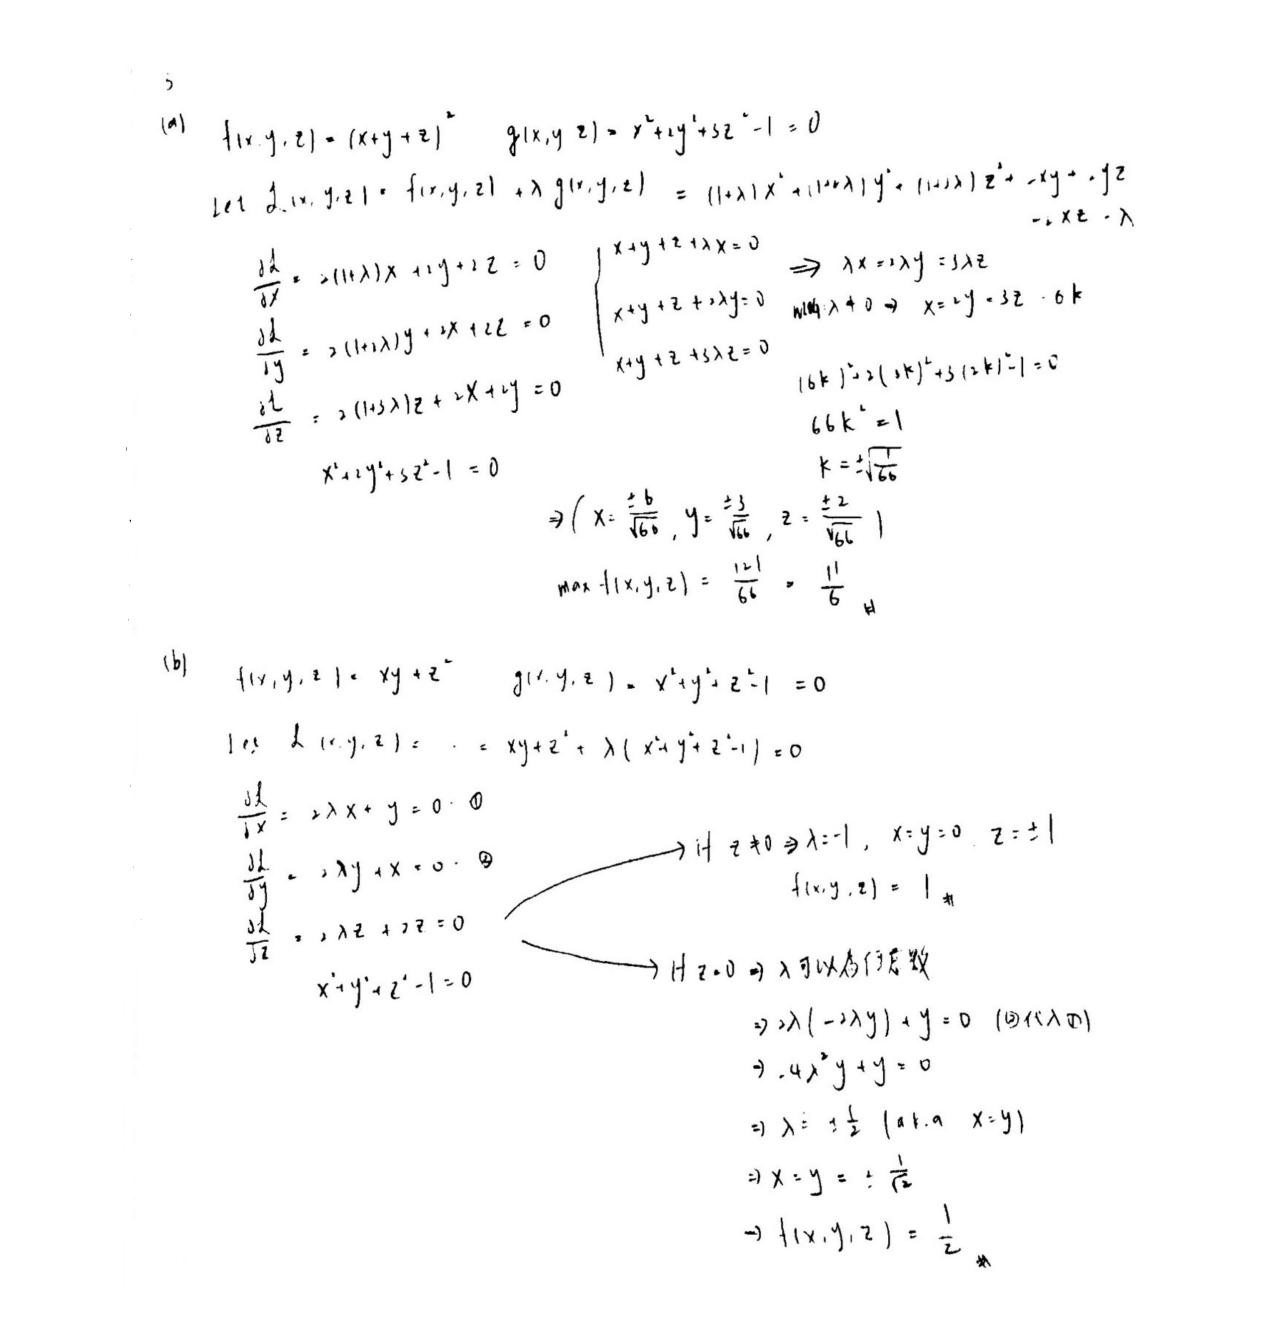 (a) f(x,y,z) = (x+y+z)² g(x,y,z) = x²+2y²+3z²-1 = 0
Let L(x,y,z) = f(x,y,z) + λg(x,y,z) = (1+λ)x² + (1+2λ)y² + (1+3λ)z² + 2xy + 2yz
+2xz - λ
∂L/∂x = 2(1+λ)x + 2y + 2z = 0
∂L/∂y = 2(1+2λ)y + 2x + 2z = 0
∂L/∂z = 2(1+3λ)z + 2x + 2y = 0
x²+2y²+3z²-1 = 0
x+y+z+λx=0
x+y+z+2λy=0
x+y+z+3λz=0
⇒ λx = 2λy = 3λz
λ≠0 ⇒ x = 2y = 3z = 6k
(6k)²+2(3k)²+3(2k)²-1=0
66k² = 1
k = ±√(1/66)
⇒ (x = ±6/√66, y = ±3/√66, z = ±2/√66)
max f(x,y,z) = 121/66 = 11/6 #
(b) f(x,y,z) = xy+z² g(x,y,z) = x²+y²+z²-1 = 0
Let L(x,y,z) = = xy+z² + λ(x²+y²+z²-1) = 0
∂L/∂x = 2λx + y = 0 ①
∂L/∂y = 2λy + x = 0 ②
∂L/∂z = 2λz + 2z = 0
x²+y²+z²-1=0
→ if z≠0 ⇒ λ=-1, x=y=0 z=±1
f(x,y,z) = 1 #
→ if z=0 ⇒ λ可以為任意數
⇒ 2λ(-2λy) + y = 0 (②代入①)
⇒ -4λ²y + y = 0
⇒ λ = ±1/2 (a.k.a x=y)
⇒ x = y = ±1/√2
⇒ f(x,y,z) = 1/2 #